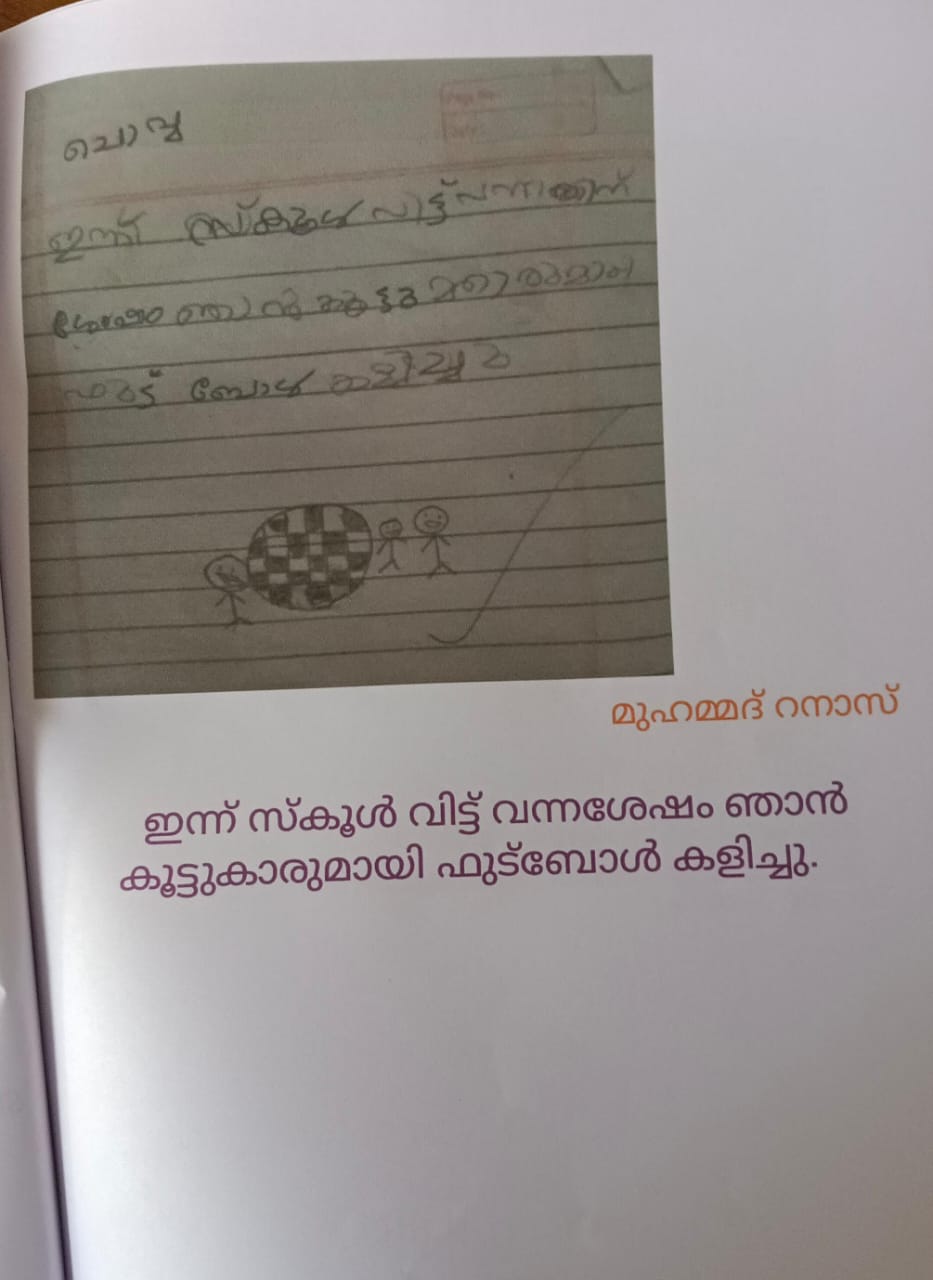 ചൊവ്വ
ഇന്ന് സ്കൂൾ വിട്ട്
ഞാൻ
ഫുട്ട് ബോൾ കളിച്ചു
മുഹമ്മദ് റനാസ്
ഇന്ന് സ്കൂൾ വിട്ട് വന്നശേഷം ഞാൻ
കൂട്ടുകാരുമായി ഫുട്ബോൾ കളിച്ചു.